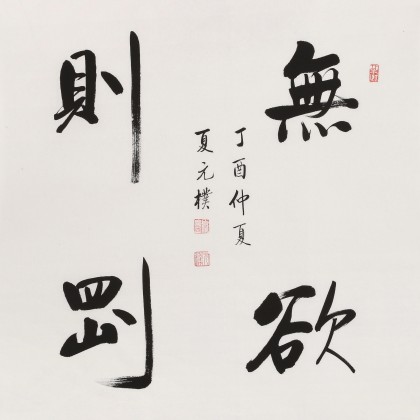 無欲
則剛
丁酉仲夏
夏元樸